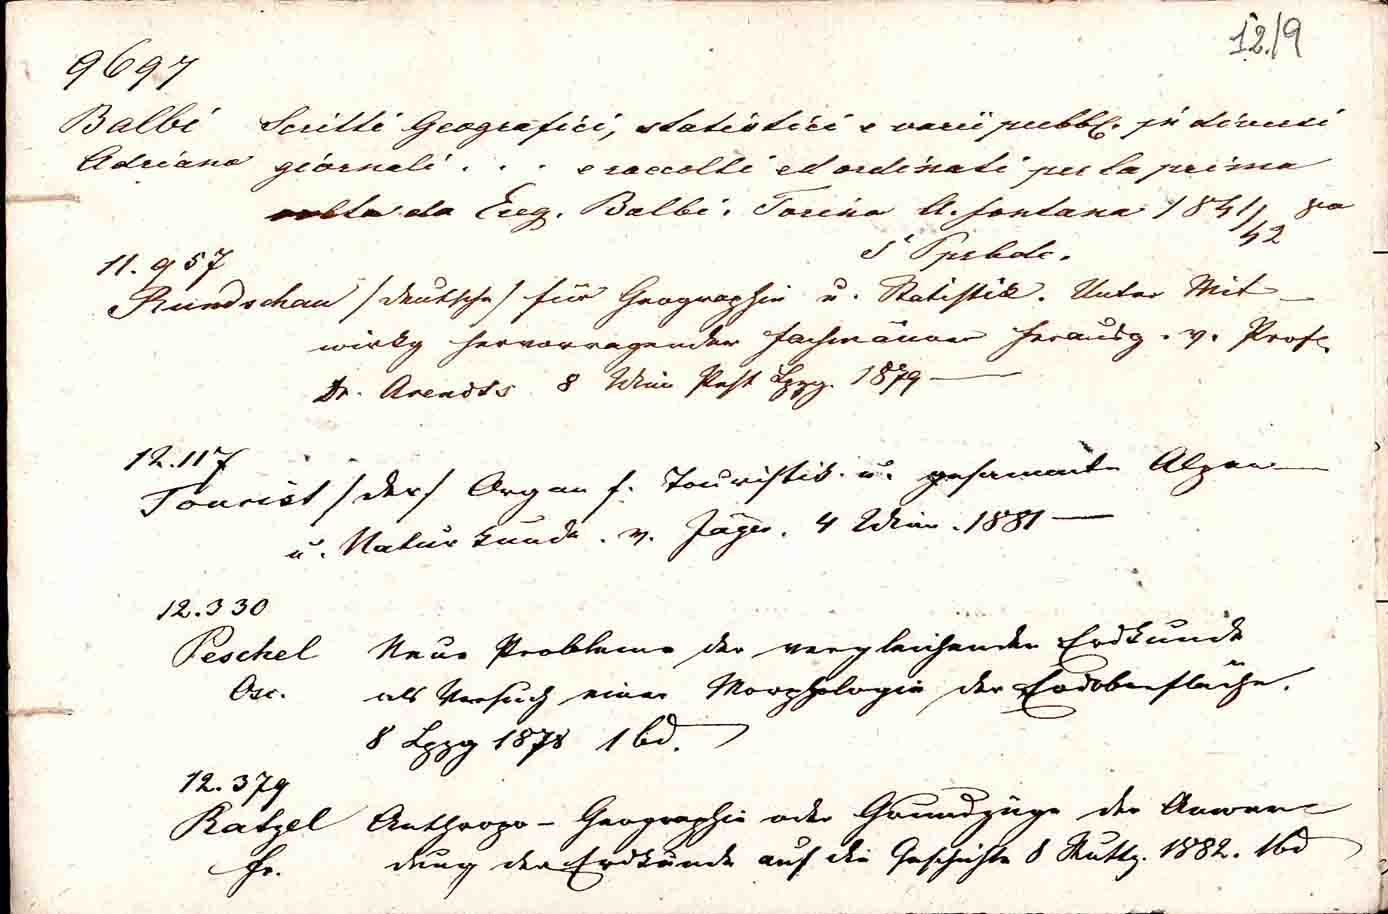 12/9
9697
Balbi Scritti Geografici, statistici e varii pubbl. in diversi
Adriano giornali . . . e raccolti ed ordinati per la prima
volta da Eug. Balbi. Torino A. Fontana 1841/42 gr
11.957
Rundschau /deutsche/ für Geographie u. Statistik. Unter Mit-
wirkg hervorragender Fachmänner herausg. v. Prof.
Dr. Arendts 8 Wien Pest Lpzg. 1879 —
12.117
Tourist /der/ Organ f. Touristik u. gesammte Alpen-
u. Naturkunde. v. Jäger. 4 Wien. 1881 —
12.330
Peschel Neue Probleme der vergleichenden Erdkunde
Osc. als Versuch einer Morphologie der Erdoberfläche.
8 Lpzg 1878 1 bd.
12.379
Ratzel Anthropo-Geographie oder Grundzüge der Anwen-
Fr. dung der Erdkunde auf die Geschichte 8 Stuttg. 1882. 1 bd